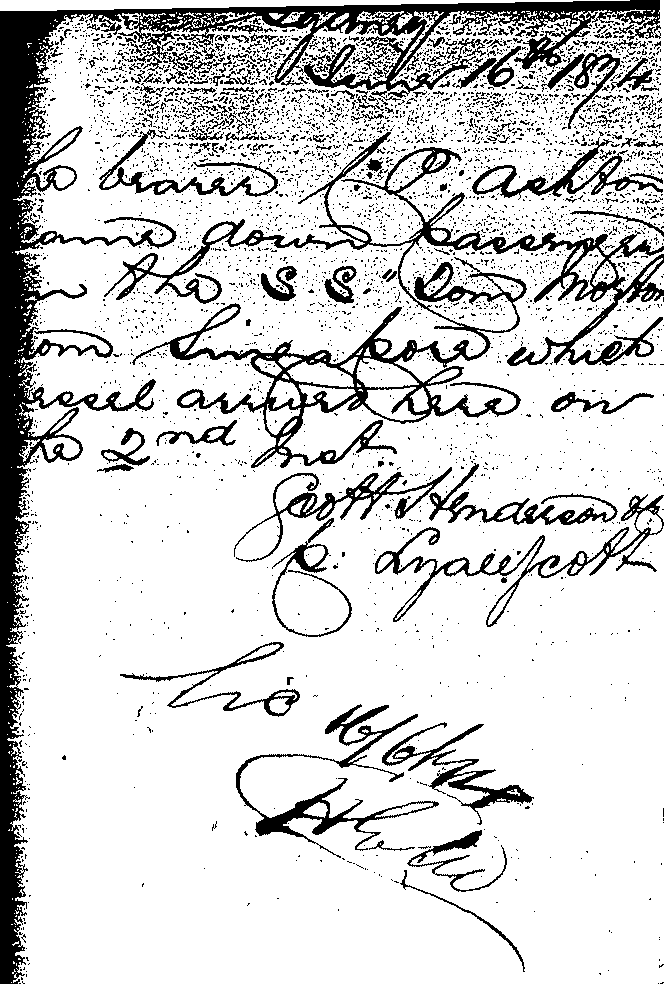 Sydney
June 16th 1874
he bearer J. P. Ashton
came down passenger
n the S.S. "Tom Morton
om Singapore which
essel arrived here on
he 2nd Inst.
Scott Henderson &
p. Lyall Scott
16/6/74